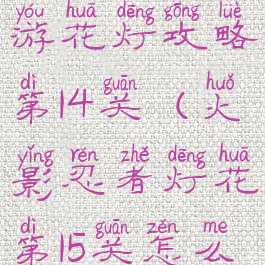 yóu huā dēng gōng lüè
游花灯攻略
dì guān huǒ
第14关（火
yǐng rěn zhě dēng huā
影忍者灯花
dì guān zěn me
第15关怎么